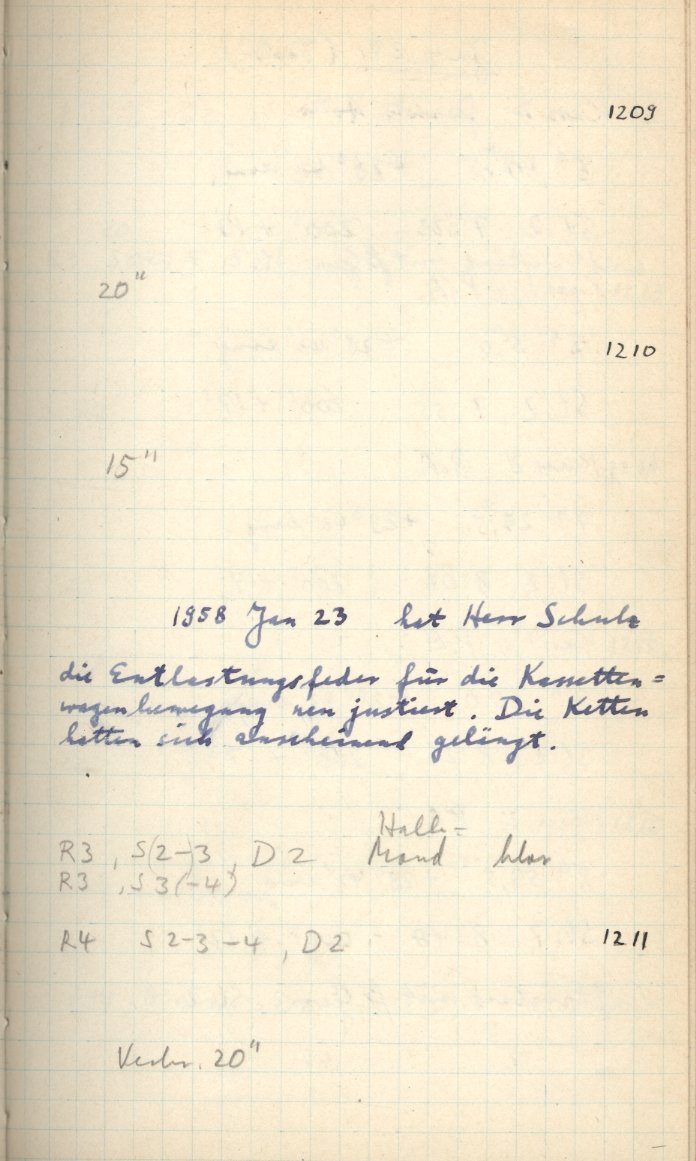 1209
20"
1210
15"
1958 Jan 23 hat Herr Schulz
die Entlastungsfeder für die Kassetten=
wagenbewegung neu justiert. Die Ketten
hatten sich anscheinend gelängt.
Halb=
R3, S(2-)3, D2 Mond klar
R3, S3(-4)
R4 S2-3-4, D2 1211
20"